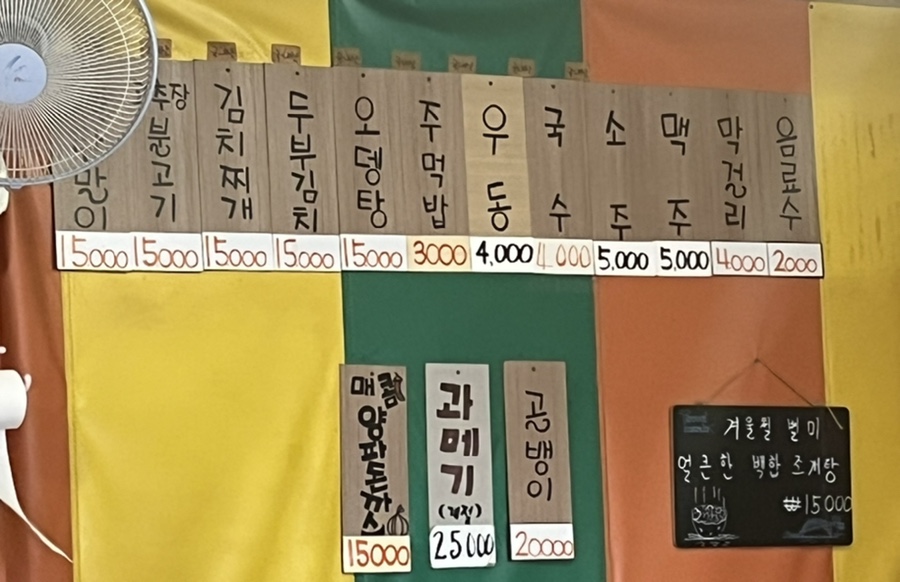 말이
15000
추장
불고기
15000
김치찌개
15000
두부김치
15000
오뎅탕
15000
주먹밥
3000
우동
4,000
국수
4000
소주
5,000
맥주
5,000
막걸리
4000
음료수
2000
매콤
양파돈까스
15000
과메기
(계절)
25000
골뱅이
20000
겨울철 별미
얼큰한 백합 조개탕
₩15000